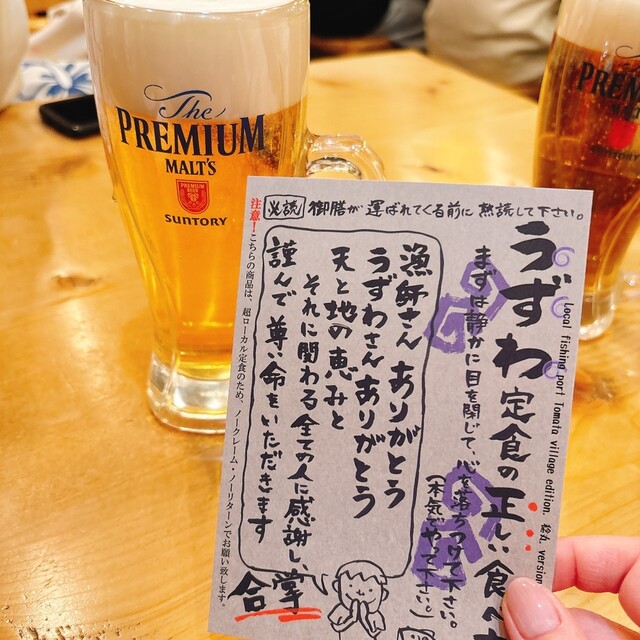 The
PREMIUM
MALT'S
PREMIUM BEER
SUNTORY
PREMIUM
SUNTORY
必読 御膳が運ばれてくる前に熟読して下さい。
うずわ定食の正しい食べ
Local fishing port Tomato village edition.
まずは静かに目を閉じて、心を落ちつけて下さい。
(本気でやって下さい。)
漁師さんありがとう
うずわさんありがとう
天と地の恵みと
それに関わる全ての人に感謝し、
謹んで尊い命をいただきます
合掌
注意!こちらの商品は、超ローカル定食のため、ノークレーム・ノーリターンでお願い致します。